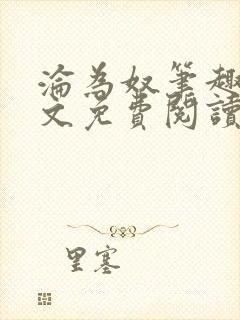 淪為奴筆趣
文免費閱讀
里塞